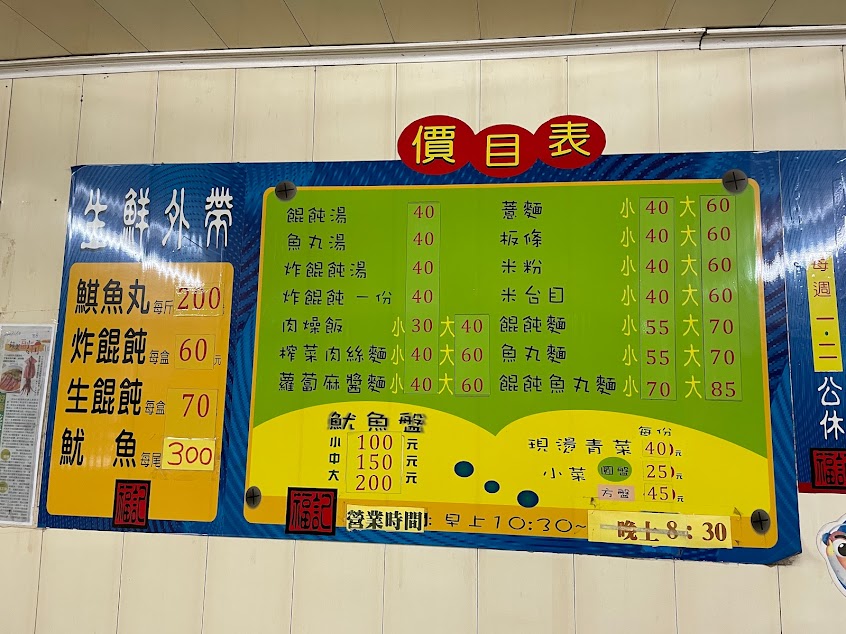 價目表
生鮮外帶
鯕魚丸 每斤 200
炸餛飩 每盒 60元
生餛飩 每盒 70
魷魚 每尾 300
福記
餛飩湯 40
魚丸湯 40
炸餛飩湯 40
炸餛飩一份 40
肉燥飯 小 30 大 40
榨菜肉絲麵 小 40 大 60
蘿蔔麻醬麵 小 40 大 60
意麵 小 40 大 60
板條 小 40 大 60
米粉 小 40 大 60
米台目 小 40 大 60
餛飩麵 小 55 大 70
魚丸麵 小 55 大 70
餛飩魚丸麵 小 70 大 85
魷魚盤
小 100 元
中 150 元
大 200 元
每份
現燙青菜 40元
小菜 圓盤 25元
方盤 45元
福記
營業時間: 早上10:30~ 晚上8:30
每週一.二
公休
福記